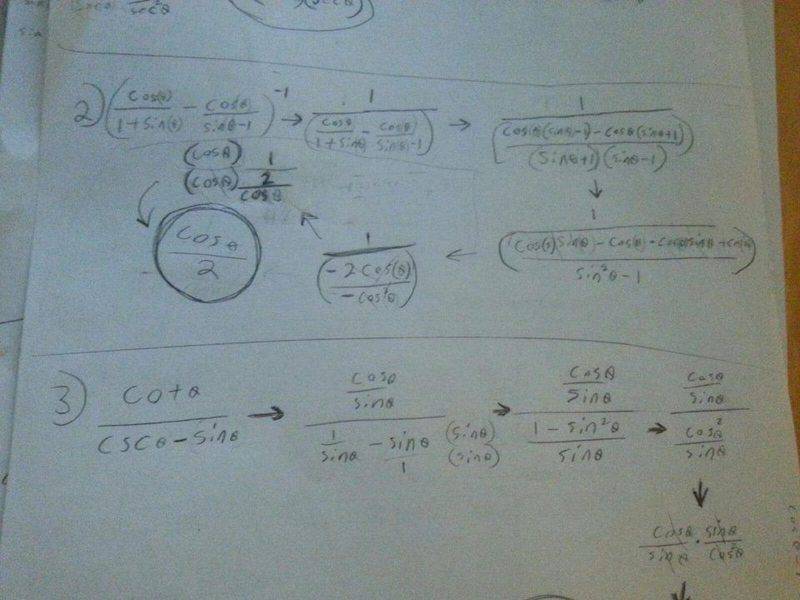 sec²θ
2) (cos(θ)/(1+sin(θ)) − cosθ/(sinθ−1))⁻¹ → 1/(cosθ/(1+sinθ) − cos(θ)/(sin(θ)−1)) → 1/((cosθ(sinθ−1) − cosθ(sinθ+1))/((sinθ+1)(sinθ−1)))
↓
1/((cos(θ)sinθ − cosθ − cosθsinθ + cosθ)/(sin²θ−1))
← 1/((−2cos(θ))/(−cos²θ))
↖ (cosθ)/(cosθ) 1/(2/cosθ)
↓ cosθ/2
3) cotθ/(cscθ−sinθ) → (cosθ/sinθ)/(1/sinθ − sinθ/1 (sinθ)/(sinθ)) → (cosθ/sinθ)/((1−sin²θ)/sinθ) → (cosθ/sinθ)/(cosθ²/sinθ)
↓
cosθ/sinθ · sinθ/cos²θ
↓